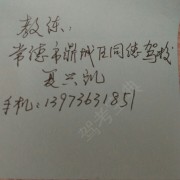 教练:
常德市鼎城区同德驾校
夏兴凯
手机:13973631851